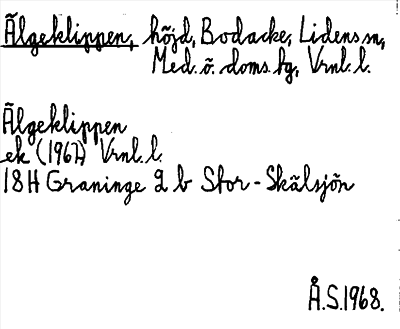 Älgeklippen, höjd, Bodacke, Lidens sn,
Med. ö. doms.hg, Vrnl. l.
Älgeklippen
ek (1967) Vrnl. l.
18H Graninge 2 b Stor-Skälsjön
Å.S.1968.